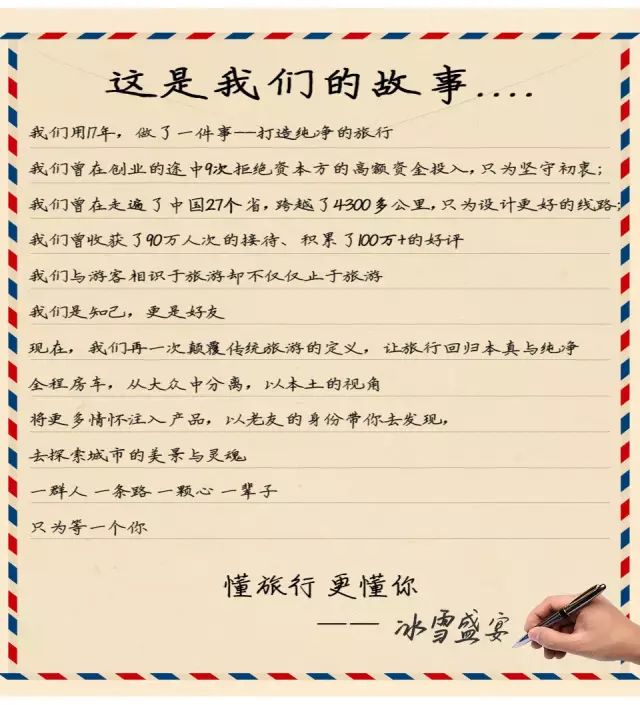 这是我们的故事....
我们用17年，做了一件事--打造纯净的旅行
我们曾在创业的途中9次拒绝资本方的高额资金投入，只为坚守初衷；
我们曾在走遍了中国27个省，跨越了4300多公里，只为设计更好的线路；
我们曾收获了90万人次的接待、积累了100万+的好评
我们与游客相识于旅游却不仅仅止于旅游
我们是知己，更是好友
现在，我们再一次颠覆传统旅游的定义，让旅行回归本真与纯净
全程房车，从大众中分离，以本土的视角
将更多情怀注入产品，以老友的身份带你去发现，
去探索城市的美景与灵魂
一群人 一条路 一颗心 一辈子
只为等一个你
懂旅行 更懂你
—— 冰雪盛宴